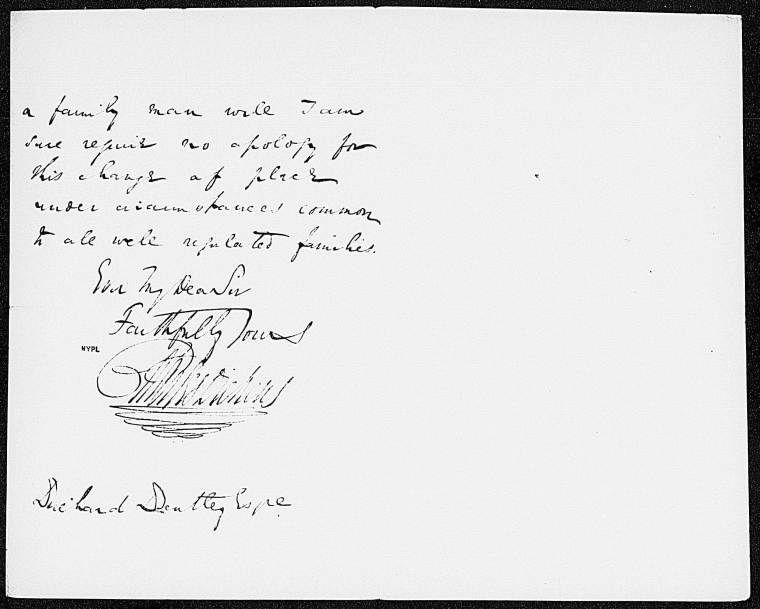 a family man will I am
sure require no apology for
this change of place
under circumstances common
to all well regulated families.
Ever My Dear Sir
Faithfully Yours
NYPL
Charles Dickens
Richard Bentley Esqre